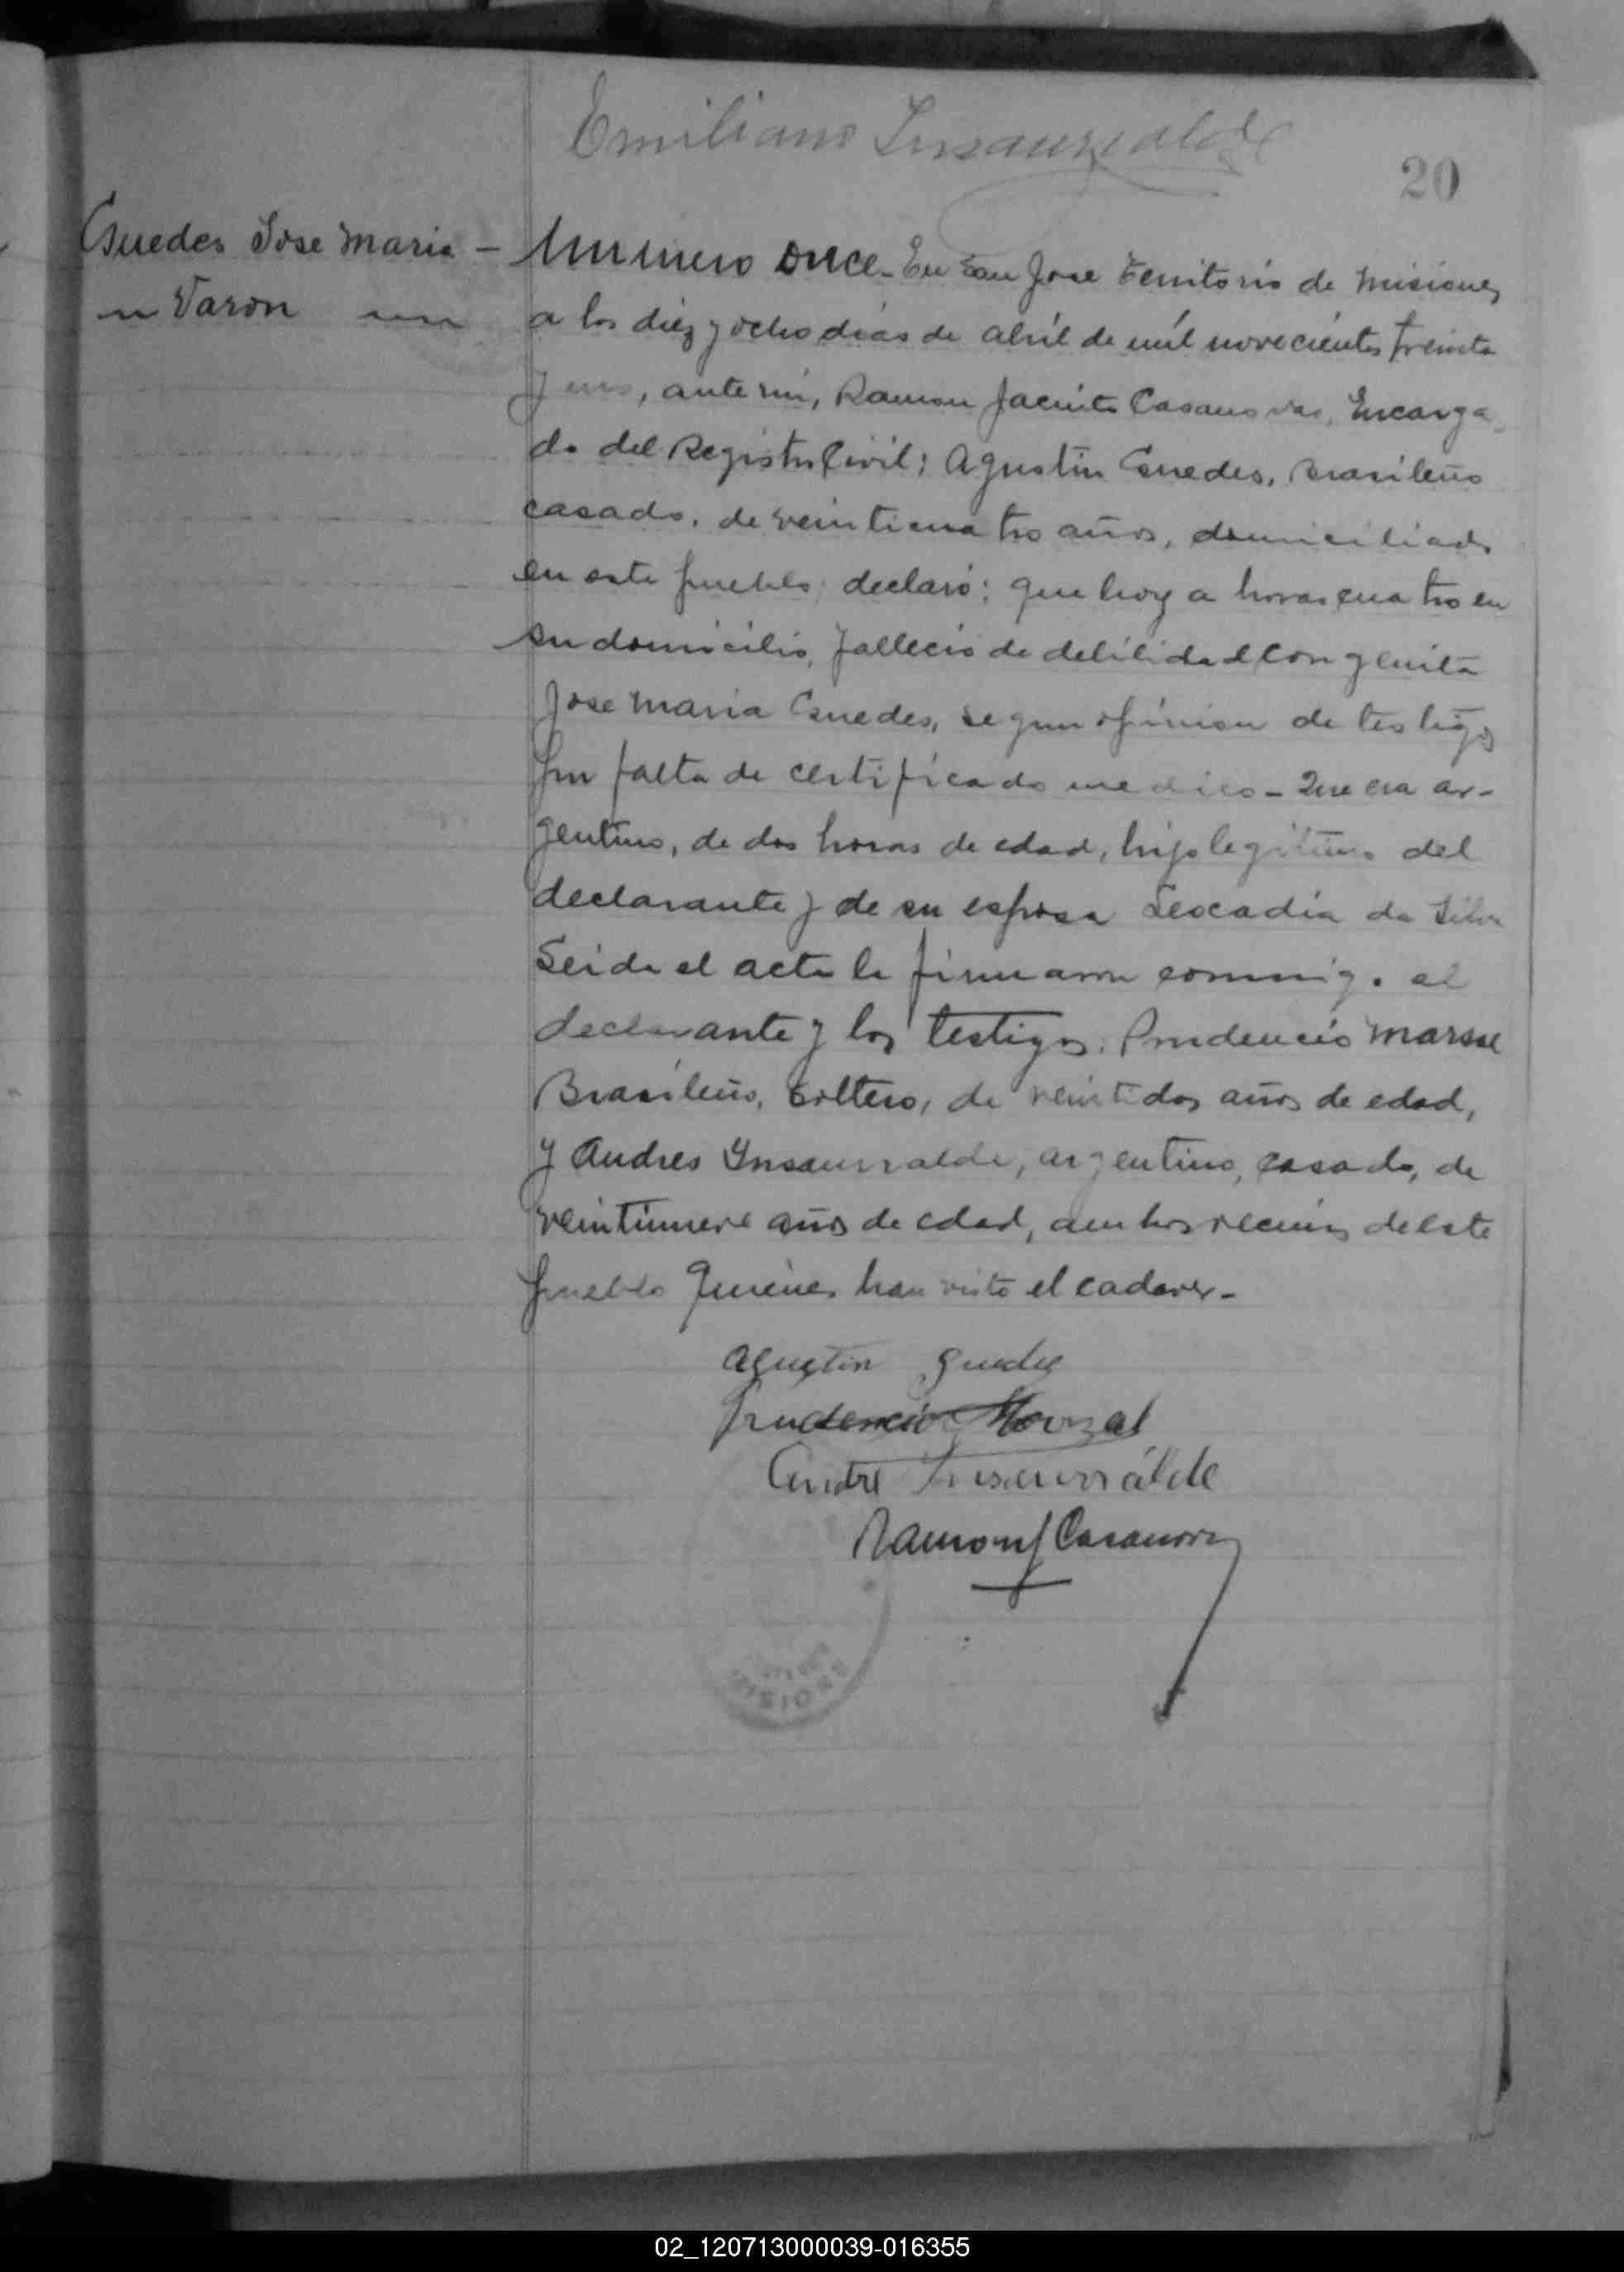 Emiliano Insaurralde
20
Guedes Jose Maria -
Varon
Numero once - En San Jose Territorio de Misiones
a los diez y ocho dias de abril de mil novecientos treinta
y uno, ante mi, Ramon Jacinto Casanovas, Encarga-
do del Registro Civil: Agustin Guedes, Brasileño
casado, de veinticuatro años, domiciliado
en este pueblo, declaró: que hoy a horas cuatro en
su domicilio, fallecio de debilidad congenita
Jose Maria Guedes, segun opinion de testigos
por falta de certificado medico - Que era ar-
gentino, de dos horas de edad, hijo legitimo del
declarante y de su esposa Leocadia da Silva
Leida el acta la firmaron conmigo el
declarante y los testigos: Prudencio Marsal
Brasileño, soltero, de veintidos años de edad,
y Andres Ynsaurralde, argentino, casado, de
veintinueve años de edad, ambos vecinos de este
pueblo quienes han visto el cadaver -
Agustin Guedes
Prudencio Marzal
Andre Insaurrálde
Ramon J Casanovas
MISIONES
02_120713000039-016355